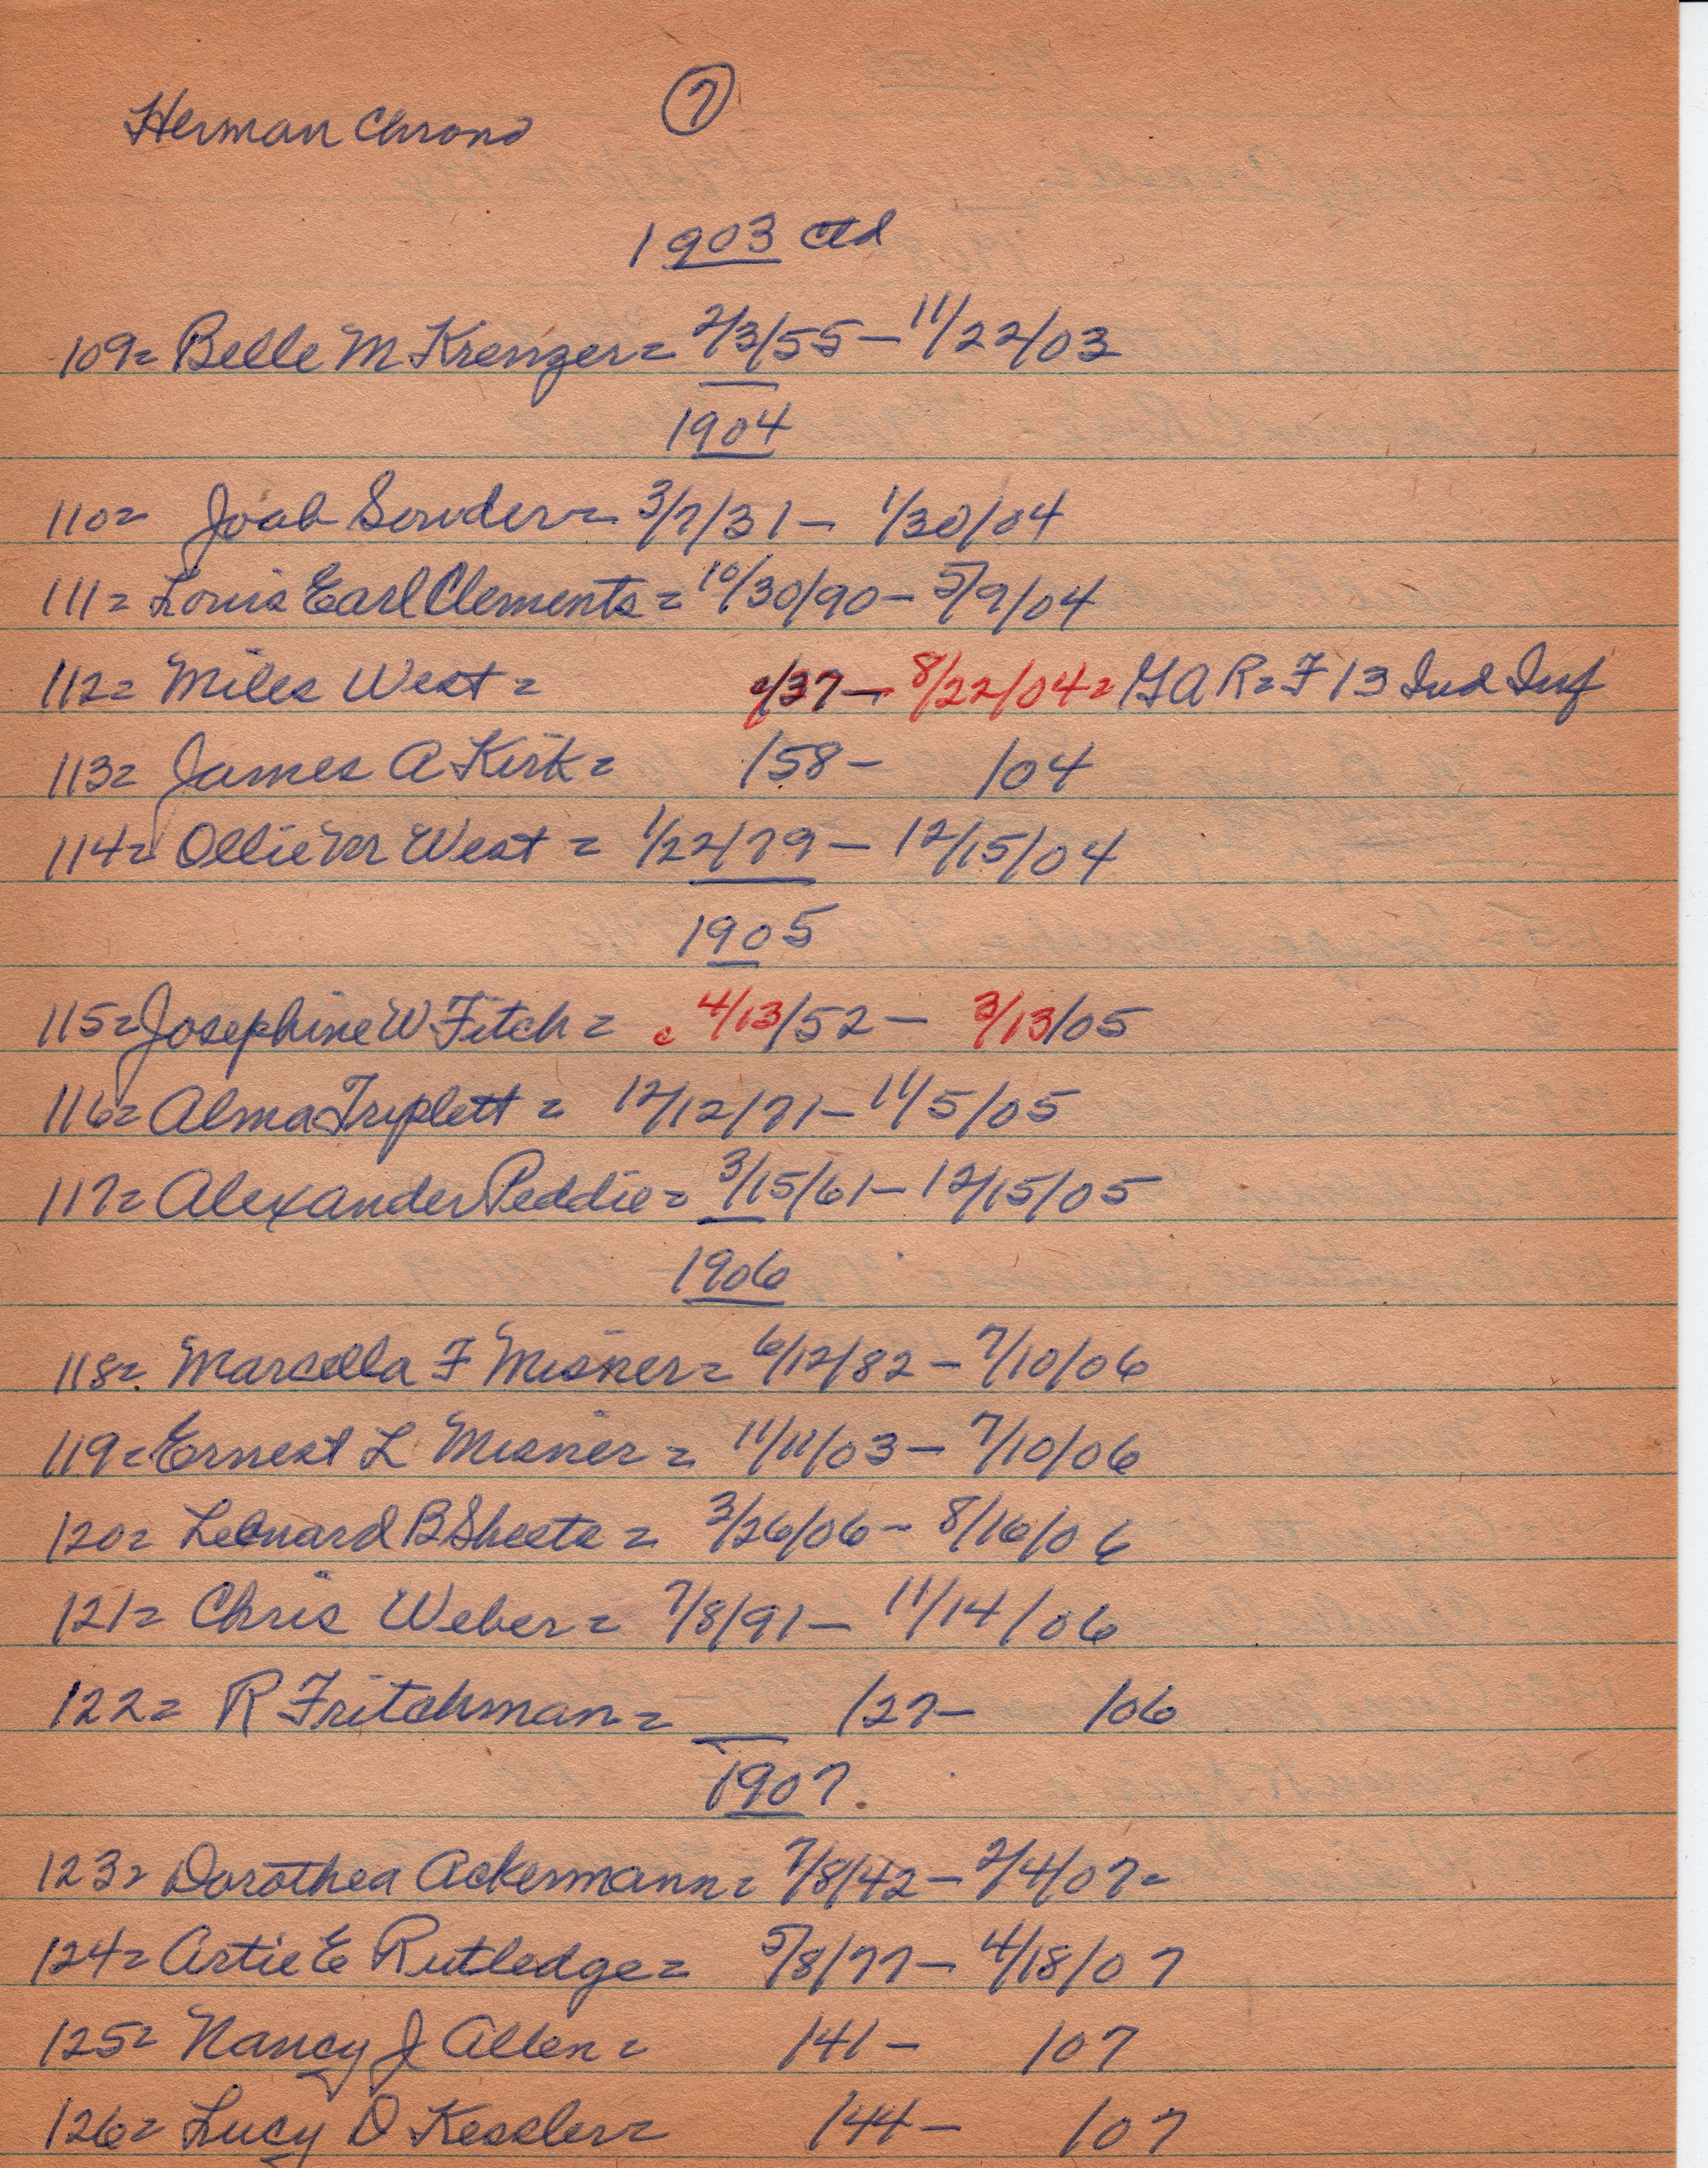 Herman Chrono 7
1903 ctd
109= Belle M Krenzer= 2/3/55 - 11/22/03
1904
110= Joab Souder= 3/7/31 - 1/30/04
111= Louis Earl Clements= 10/30/90 - 5/9/04
112= Miles West= c/37 - 8/22/04= GAR= F 13 Ind Inf
113= James A Kirk= /58 - /04
114= Ollie M West= 1/22/79 - 12/15/04
1905
115= Josephine W Fitch= c 4/13/52 - 3/13/05
116= Alma Triplett= 12/12/71 - 11/5/05
117= Alexander Peddie= 3/15/61 - 12/15/05
1906
118= Marcella F Misner= 6/12/82 - 7/10/06
119= Ernest L Misner= 11/11/03 - 7/10/06
120= Leonard B Sheets= 3/26/06 - 8/16/06
121= Chris Weber= 7/8/91 - 11/14/06
122= R Fritchman= /27 - /06
1907
123= Dorothea Ackermann= 7/8/42 - 2/4/07=
124= Artie E Rutledge= 5/8/77 - 4/18/07
125= Nancy J Allen= /41 - /07
126= Lucy D Kesler= /44 - /07